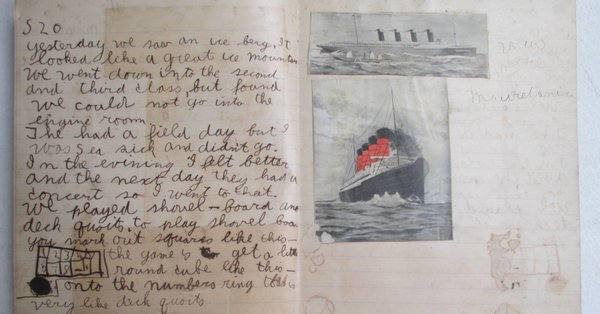 520
yesterday we saw an ice berg. It
looked like a great ice mountain
We went down into the second
and third class, but found
we could not go into the
engine room.
The had a field day but I
was sea sick and didn't go.
In the evening I felt better
and the next day they had a
concert so I went to that.
We played shovel-board and
deck quoits. to play shovel boa
you mark out squares like this-
the game is to get a litt
round cube like this-
onto the numbers ring this is
very like deck quoits
Mauretania